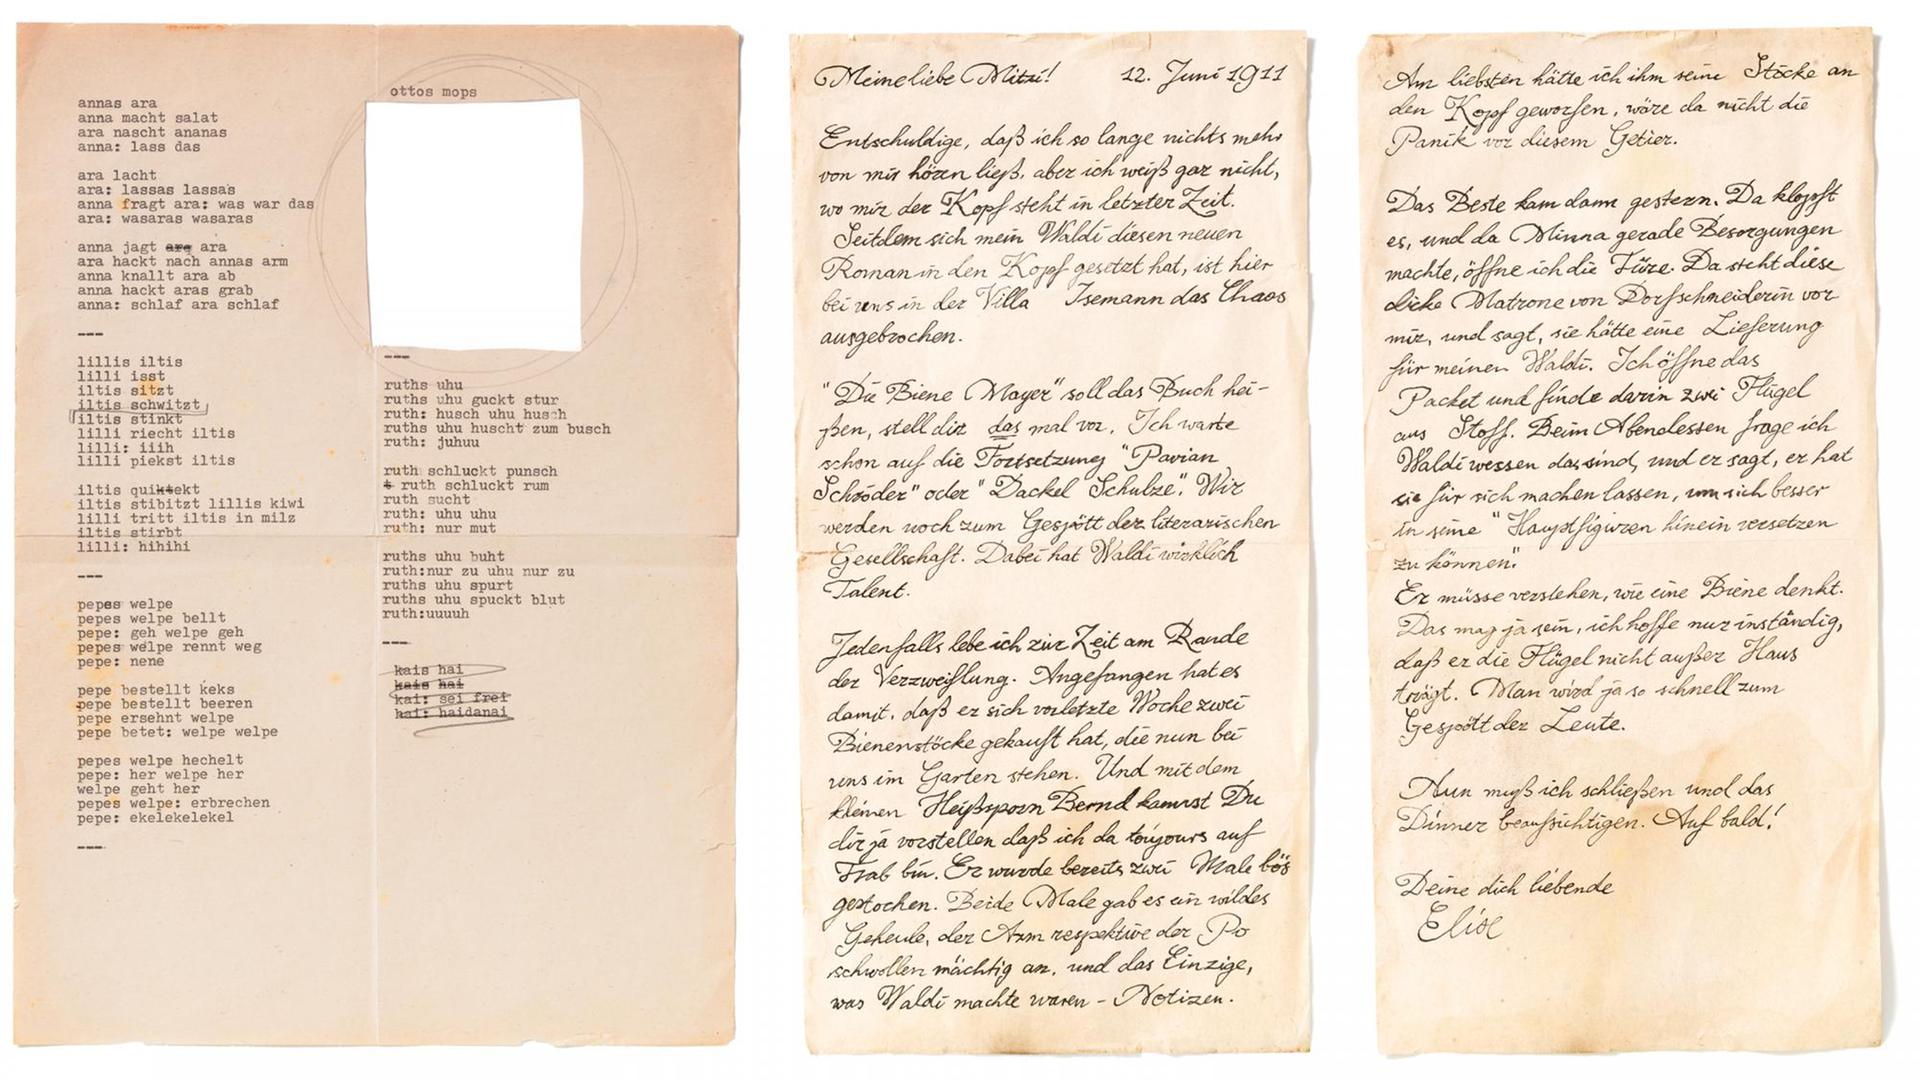 annas ara
anna macht salat
ara nascht ananas
anna: lass das
ara lacht
ara: lassas lassas
anna fragt ara: was war das
ara: wasaras wasaras
anna jagt are ara
ara hackt nach annas arm
anna knallt ara ab
anna hackt aras grab
anna: schlaf ara schlaf
---
lillis iltis
lilli isst
iltis sitzt
iltis schwitzt
iltis stinkt
lilli riecht iltis
lilli: iiih
lilli piekst iltis
iltis quiktekt
iltis stibitzt lillis kiwi
lilli tritt iltis in milz
iltis stirbt
lilli: hihihi
---
pepes welpe
pepes welpe bellt
pepe: geh welpe geh
pepes welpe rennt weg
pepe: nene
pepe bestellt keks
pepe bestellt beeren
pepe ersehnt welpe
pepe betet: welpe welpe
pepes welpe hechelt
pepe: her welpe her
welpe geht her
pepes welpe: erbrechen
pepe: ekelekelekel
---
ottos mops
---
ruths uhu
ruths uhu guckt stur
ruth: husch uhu husch
ruths uhu huscht zum busch
ruth: juhuu
ruth schluckt punsch
t ruth schluckt rum
ruth sucht
ruth: uhu uhu
ruth: nur mut
ruths uhu buht
ruth:nur zu uhu nur zu
ruths uhu spurt
ruths uhu spuckt blut
ruth:uuuuh
---
kais hai
kais hai
kai: sei frei
hai: haidanai
Meine liebe Mitzi! 12. Juni 1911
Entschuldige, daß ich so lange nichts mehr
von mir hören ließ, aber ich weiß gar nicht,
wo mir der Kopf steht in letzter Zeit.
Seitdem sich mein Waldi diesen neuen
Roman in den Kopf gesetzt hat, ist hier
bei uns in der Villa Isemann das Chaos
ausgebrochen.
"Die Biene Mayer" soll das Buch hei-
ßen, stell dir das mal vor. Ich warte
schon auf die Fortsetzung "Pavian
Schröder" oder "Dackel Schulze". Wir
werden noch zum Gespött der literarischen
Gesellschaft. Dabei hat Waldi wirklich
Talent.
Jedenfalls lebe ich zur Zeit am Rande
der Verzweiflung. Angefangen hat es
damit, daß er sich vorletzte Woche zwei
Bienenstöcke gekauft hat, die nun bei
uns im Garten stehen. Und mit dem
kleinen Heißsporn Bernd kannst Du
dir ja vorstellen daß ich da toujours auf
Trab bin. Er wurde bereits zwei Male bös
gestochen. Beide Male gab es ein wildes
Geheule, der Arm respektive der Po
schwollen mächtig an, und das Einzige,
was Waldi machte waren - Notizen.
Am liebsten hätte ich ihm seine Stöcke an
den Kopf geworfen, wäre da nicht die
Panik vor diesem Getier.
Das Beste kam dann gestern. Da klopft
es, und da Minna gerade Besorgungen
machte, öffne ich die Türe. Da steht diese
dicke Matrone von Dorfschneiderin vor
mir, und sagt, sie hätte eine Lieferung
für meinen Waldi. Ich öffne das
Packet und finde darin zwei Flügel
aus Stoff. Beim Abendessen frage ich
Waldi wessen das sind, und er sagt, er hat
sie für sich machen lassen, um sich besser
in seine "Hauptfiguren hinein versetzen
zu können".
Er müsse verstehen, wie eine Biene denkt.
Das mag ja sein, ich hoffe nur inständig,
daß er die Flügel nicht außer Haus
trägt. Man wird ja so schnell zum
Gespött der Leute.
Nun muß ich schließen und das
Dinner beaufsichtigen. Auf bald!
Deine dich liebende
Elise